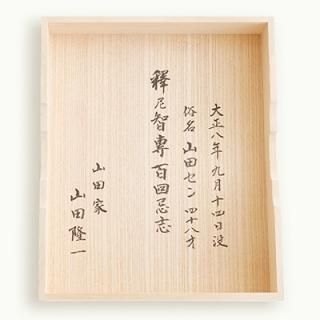 大正八年九月十四日没
俗名 山田セン 四十八才
釋尼智専百回忌志
山田家
山田隆一